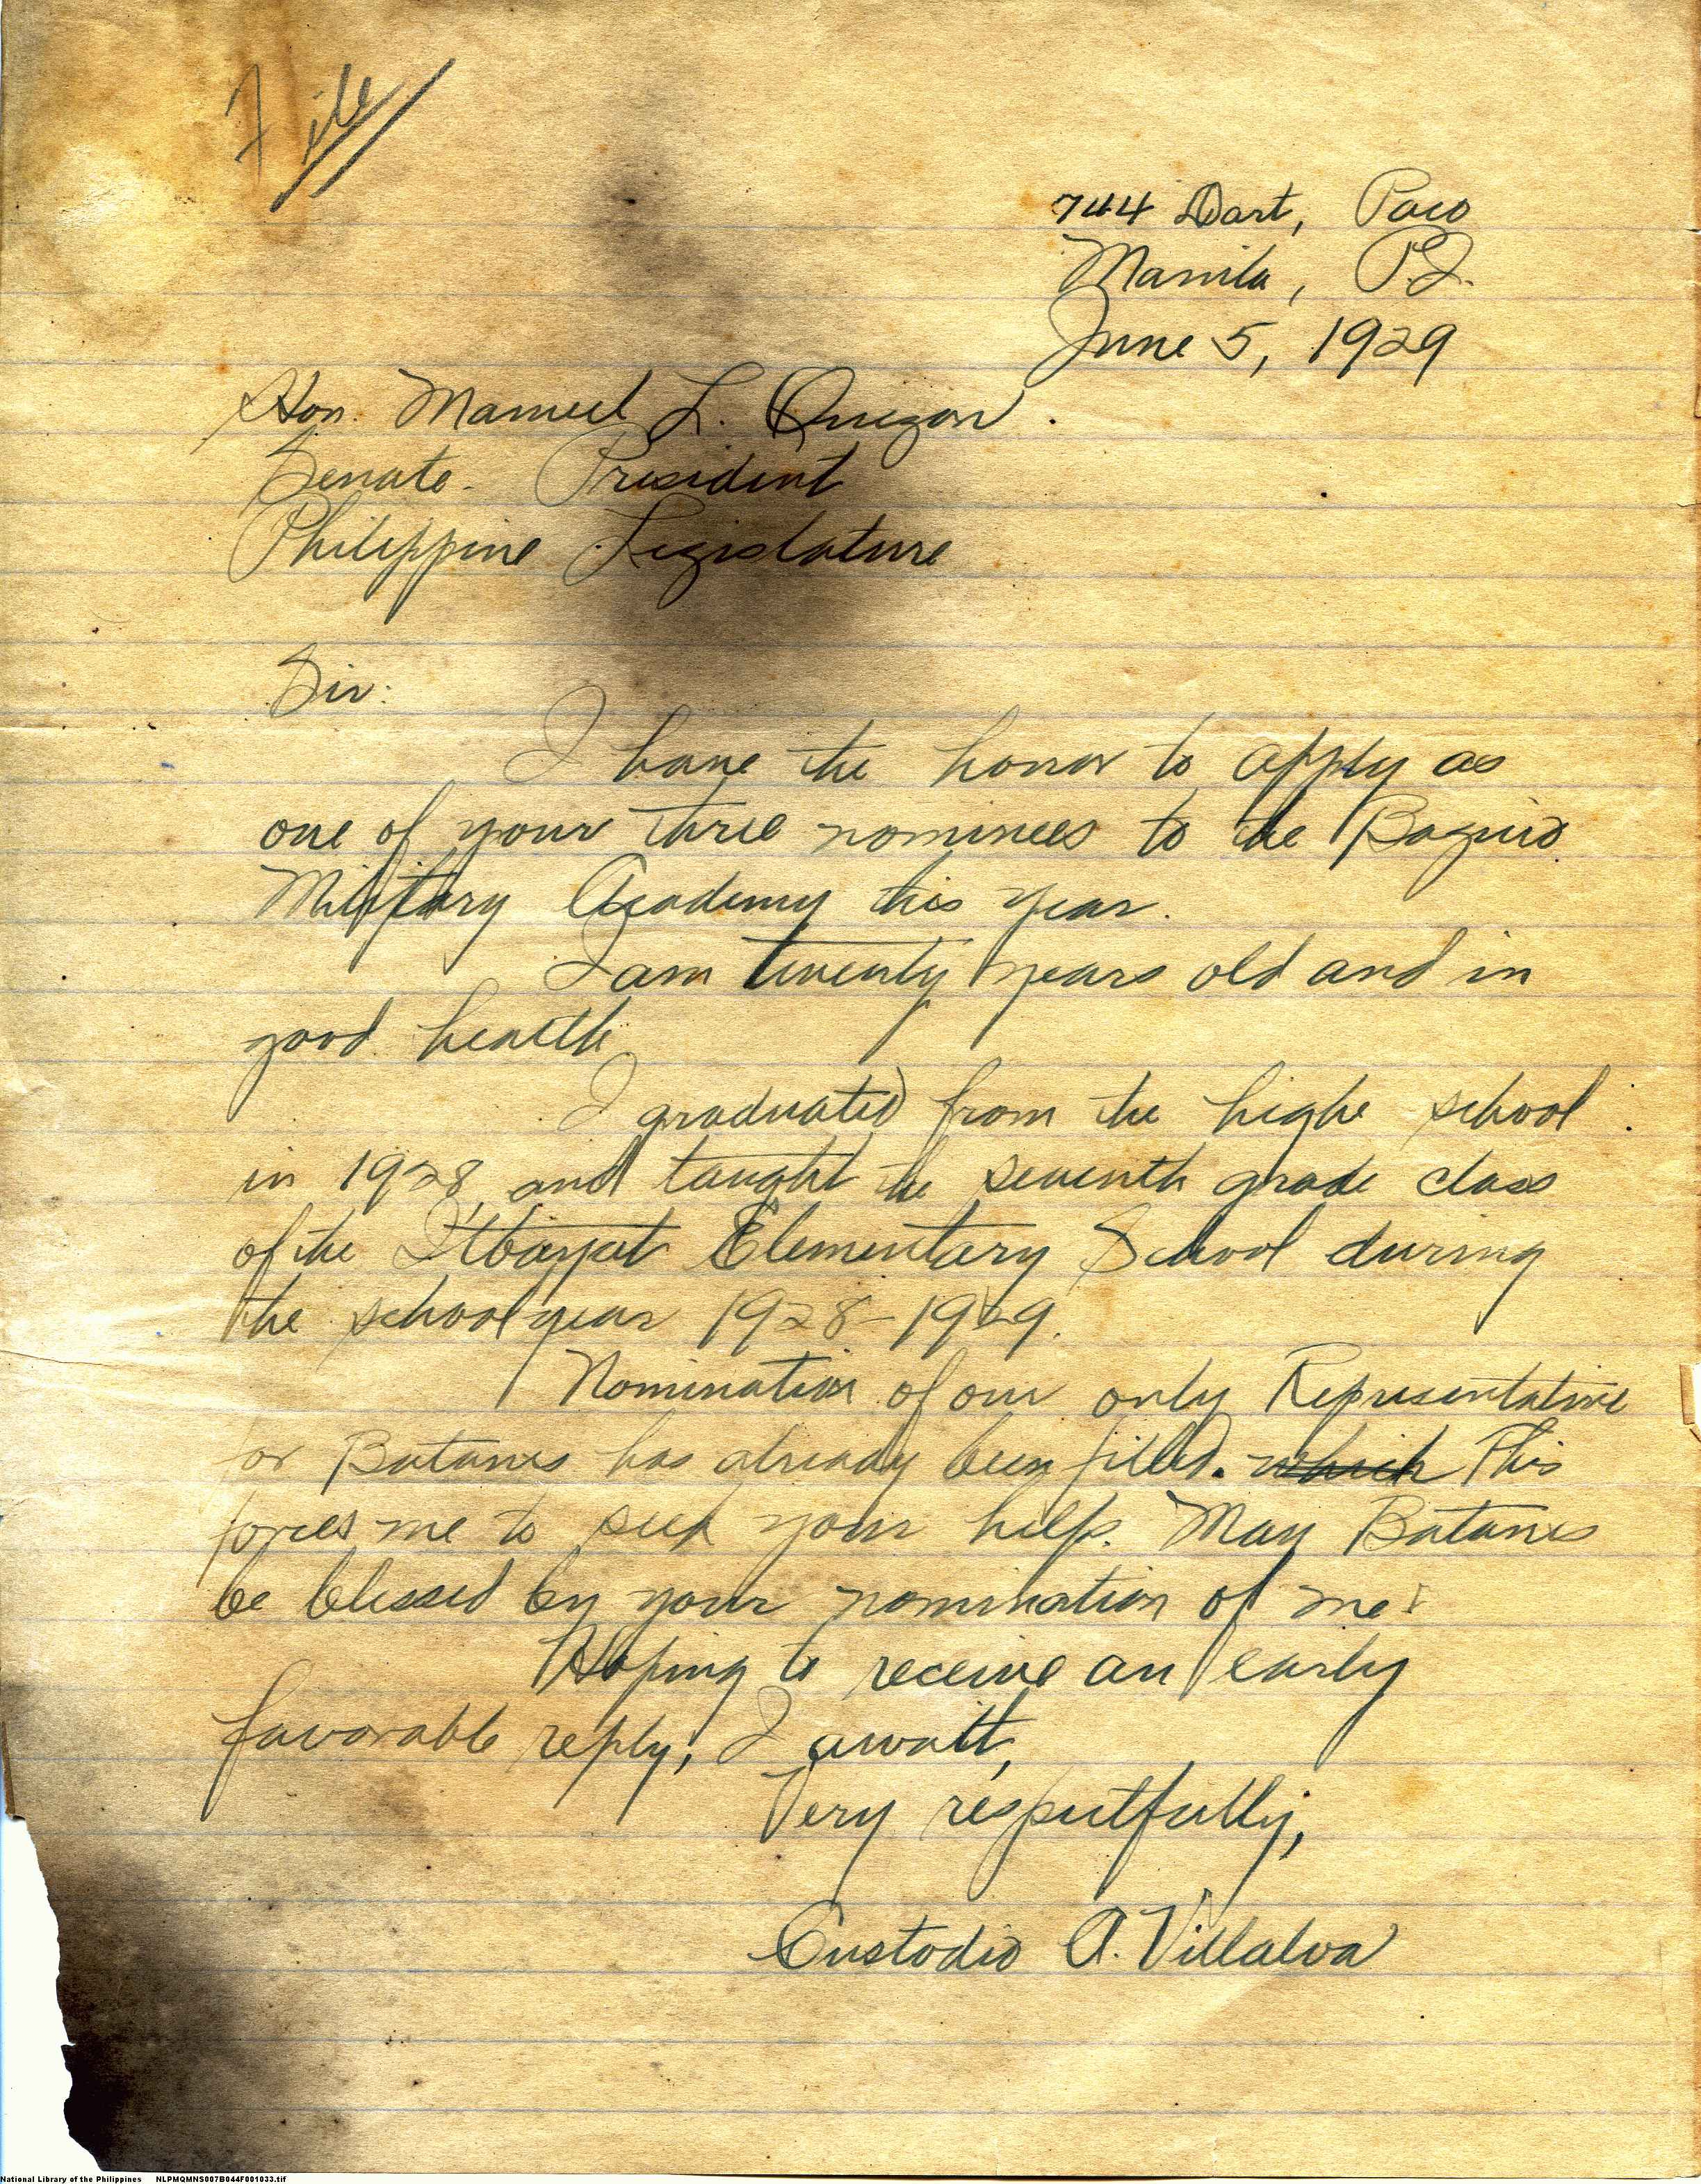 File
744 Dart, Paco
Manila, P.I.
June 5, 1929
Hon. Manuel L. Quezon.
Senate President
Philippine Legislature
Sir:
I have the honor to apply as
one of your three nominees to the Baguio
Military Academy this year.
I am twenty years old and in
good health.
I graduated from the high school
in 1928 and taught the seventh grade class
of the Itbayat Elementary School during
the school year 1928-1929.
Nomination of our only Representative
for Batanes has already been filled. which This
forces me to seek your help. May Batanes
be blessed by your nomination of me!
Hoping to receive an early
favorable reply, I await,
Very respectfully,
Custodio A. Villalva
National Library of the Philippines NLPMQMNS007B044F001033.tif